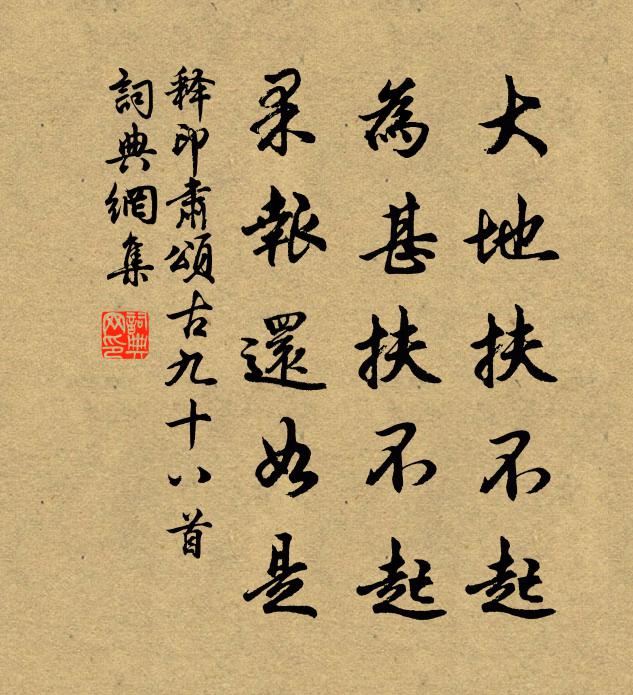 大地扶不起
為甚扶不起
果報還如是
释印肅頌古九十八首
詞典網集
詞典網印